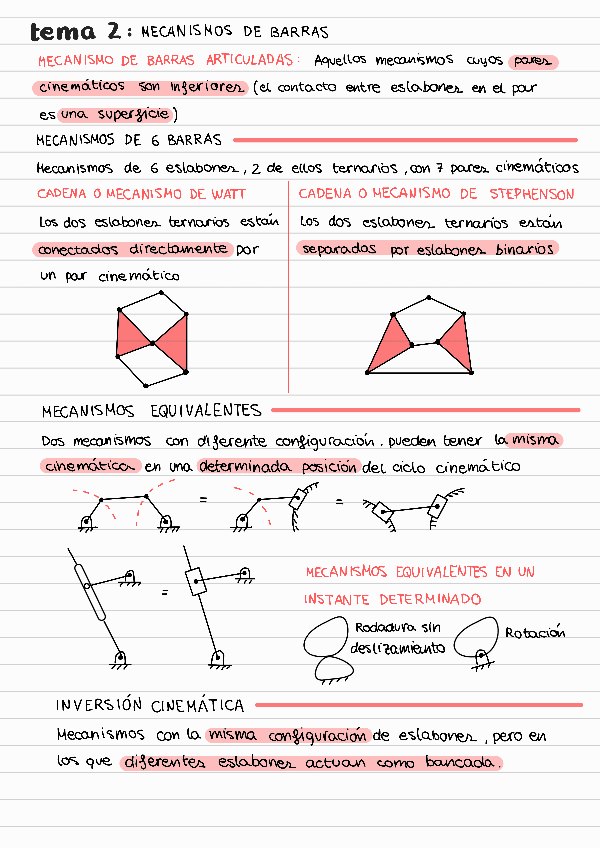 tema 2: MECANISMOS DE BARRAS
MECANISMO DE BARRAS ARTICULADAS: Aquellos mecanismos cuyos pares
cinemáticos son inferiores (el contacto entre eslabones en el par
es una superficie)
MECANISMOS DE 6 BARRAS
Mecanismos de 6 eslabones, 2 de ellos ternarios, con 7 pares cinemáticos
CADENA O MECANISMO DE WATT
Los dos eslabones ternarios están
conectados directamente por
un par cinemático
CADENA O MECANISMO DE STEPHENSON
Los dos eslabones ternarios están
separados por eslabones binarios
MECANISMOS EQUIVALENTES
Dos mecanismos con diferente configuración, pueden tener la misma
cinemática en una determinada posición del ciclo cinemático
= =
=
MECANISMOS EQUIVALENTES EN UN
INSTANTE DETERMINADO
Rodadura sin
deslizamiento
Rotación
INVERSIÓN CINEMÁTICA
Mecanismos con la misma configuración de eslabones, pero en
los que diferentes eslabones actuan como bancada.